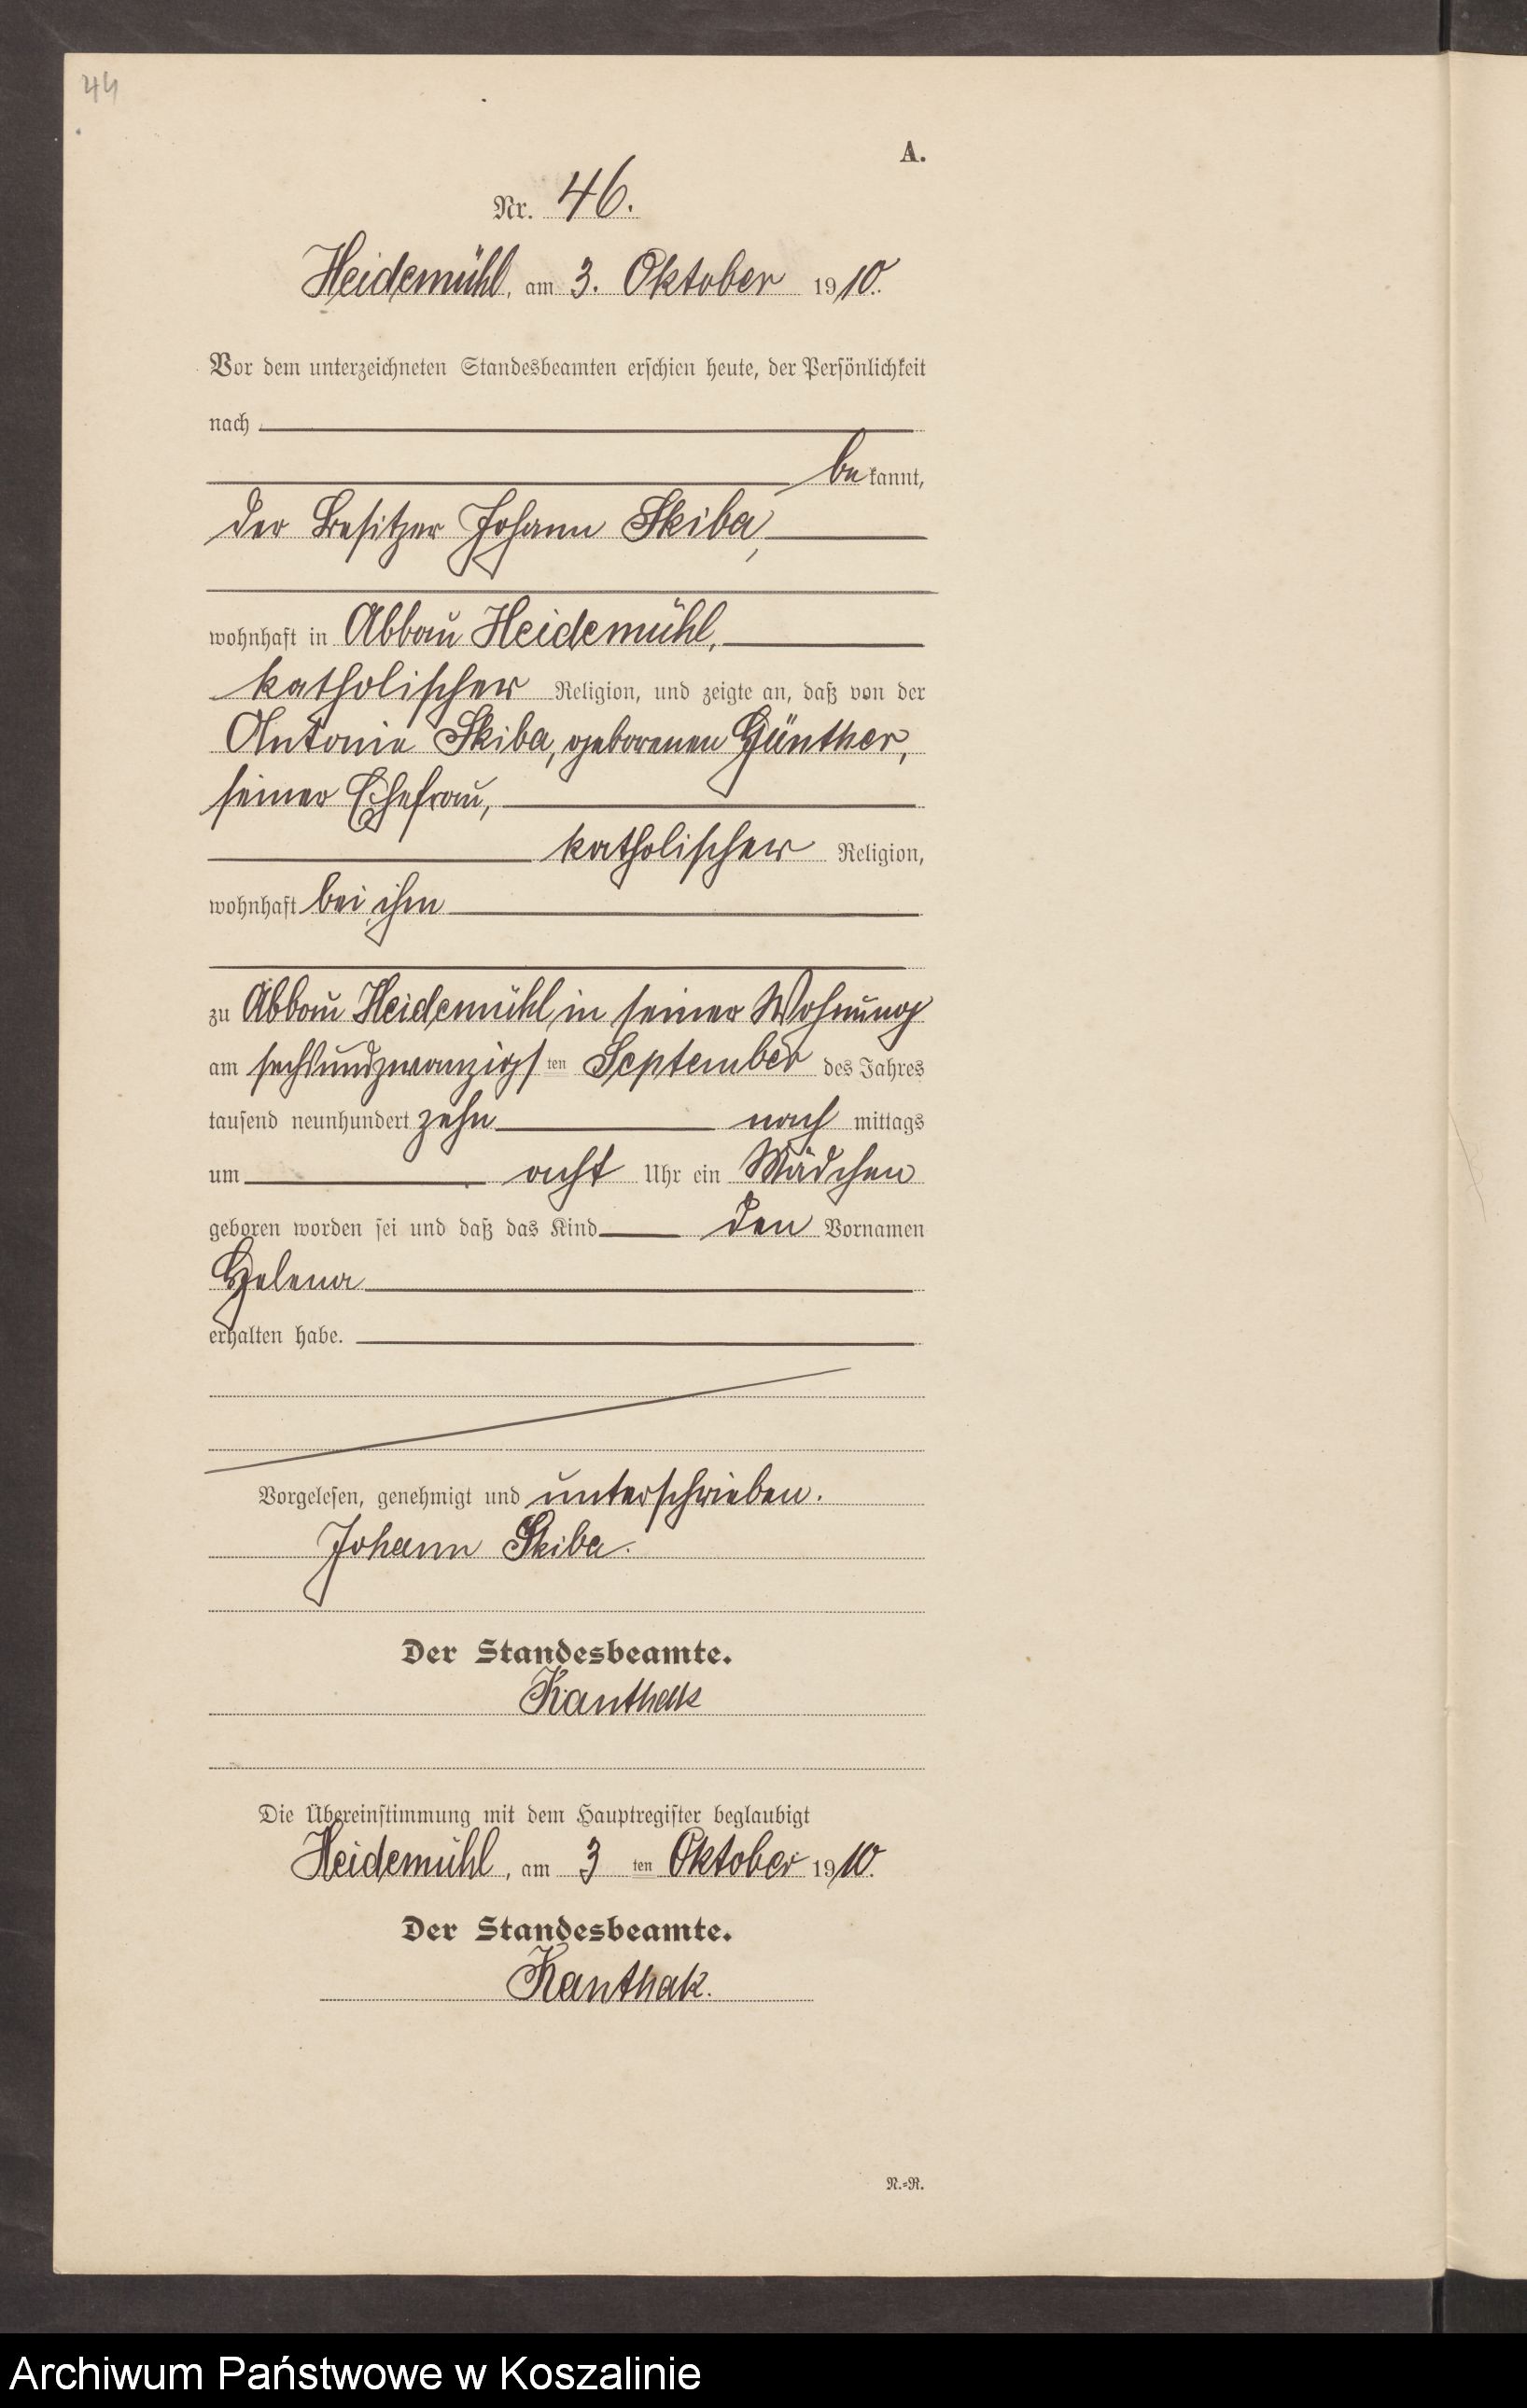 44
A.
Nr. 46.
Heidemühl, am 3. Oktober 1910.
Vor dem unterzeichneten Standesbeamten erschien heute, der Persönlichkeit
nach
bekannt,
der Besitzer Johann Skiba,
wohnhaft in Abbau Heidemühl,
katholischer Religion, und zeigte an, daß von der
Antonie Skiba, geborenen Günther,
seiner Ehefrau,
katholischer Religion,
wohnhaft bei ihm
zu Abbau Heidemühl in seiner Wohnung
am sechsundzwanzigsten September des Jahres
tausend neunhundert zehn nachmittags
um acht Uhr ein Mädchen
geboren worden sei und daß das Kind den Vornamen
Helena
erhalten habe.
Vorgelesen, genehmigt und unterschrieben.
Johann Skiba.
Der Standesbeamte.
Kanthak
Die Übereinstimmung mit dem Hauptregister beglaubigt
Heidemühl, am 3ten Oktober 1910.
Der Standesbeamte.
Kanthak.
N.=R.
Archiwum Państwowe w Koszalinie